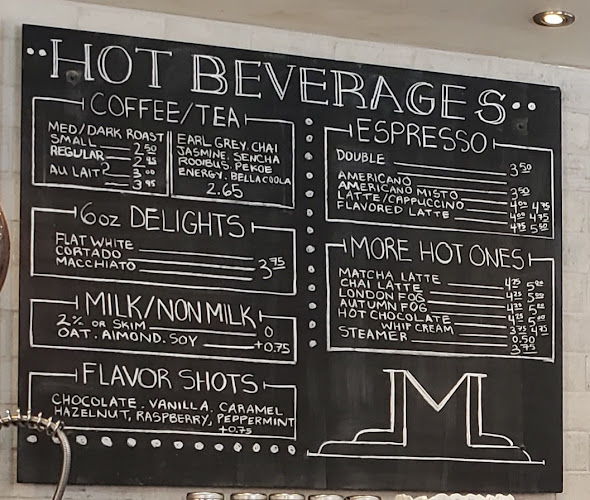 HOT BEVERAGES
COFFEE/TEA
MED/DARK ROAST
SMALL 2.50
REGULAR 2.95
AU LAIT? 3.00
3.95
EARL GREY. CHAI
JASMINE. SENCHA
ROOIBUS. PEKOE
ENERGY. BELLA COOLA
2.65
6oz DELIGHTS
FLAT WHITE
CORTADO 3.75
MACCHIATO
MILK/NON MILK
2% OR SKIM 0
OAT. AlMOND. SOY +0.75
FLAVOR SHOTS
CHOCOLATE. VANILLA. CARAMEL
HAZELNUT, RASPBERRY, PEPPERMINT
+0.75
ESPRESSO
DOUBLE 3.50
AMERICANO 3.50
AMERICANO MISTO 4.00 4.75
LATTE/CAPPUCCINO 4.00 4.75
FLAVORED LATTE 4.75 5.50
MORE HOT ONES
MATCHA LATTE 4.25 5.00
CHAI LATTE 4.25 5.00
LONDON FOG 4.25 5.00
AUTUMN FOG 4.25 5.00
HOT CHOCOLATE 3.75 4.75
WHIP CREAM 0.50
STEAMER 3.75
ML